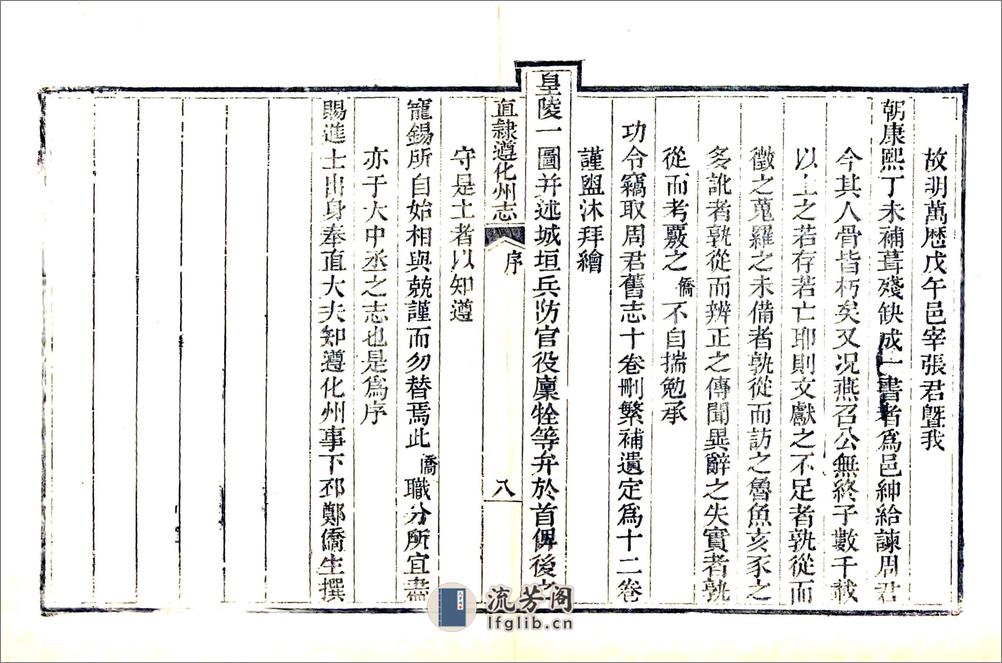 故明萬歷戊午邑宰張君曁我
朝康熙丁未補葺殘缺成一書者爲邑紳給諫周君
今其人骨皆朽矣又况燕召公無終子數千載
以上之若存若亡耶則文獻之不足者孰從而
徵之蒐羅之未備者孰從而訪之魯魚亥豕之
多訛者孰從而辨正之傳聞異辭之失實者孰
從而考覈之僑不自揣勉承
功令竊取周君舊志十卷刪繁補遺定爲十二卷
謹盥沐拜繪
皇陵一圖并述城垣兵防官役廩牲等弁於首俾後之
直隸遵化州志
序
八
守是土者以知遵
寵錫所自始相與兢謹而勿替焉此僑職分所宜盡
亦于大中丞之志也是爲序
賜進士出身奉直大夫知遵化州事下邳鄭僑生撰
流芳阁
lfglib.cn